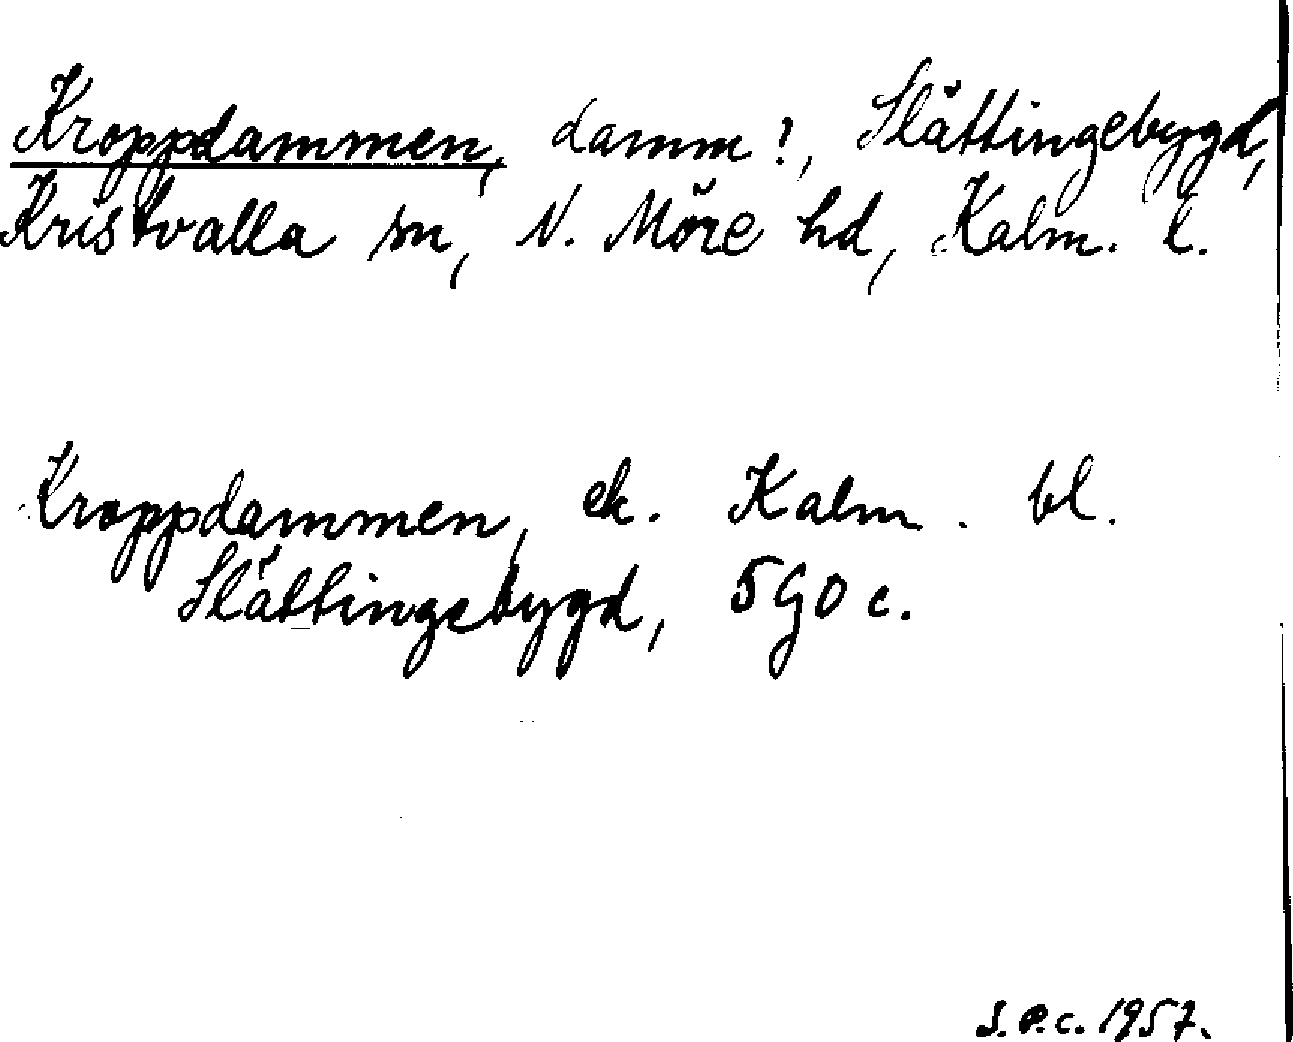 Kroppdammen, damm?, Slättingebygd,
Kristvalla sn, N. Möre hd, Kalm. l.
Kroppdammen, ek. Kalm. bl.
Slättingebygd, 5G0c.
S.P.c. 1957.